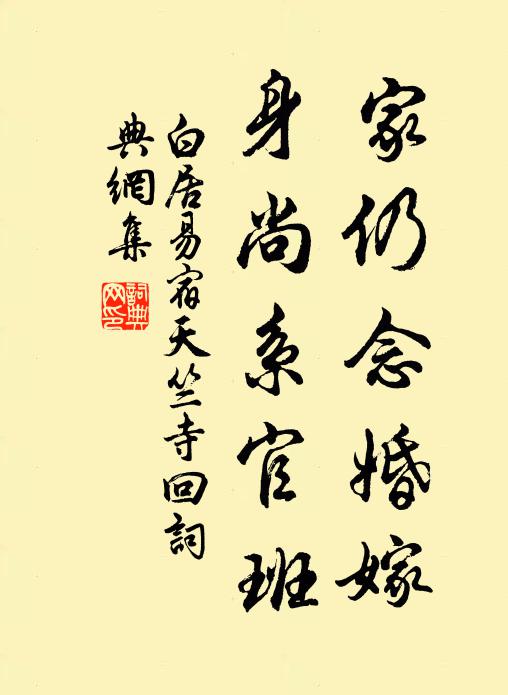 家仍念婚嫁
身尚系官班
白居易宿天竺寺回詞
典網集
詞典
网印